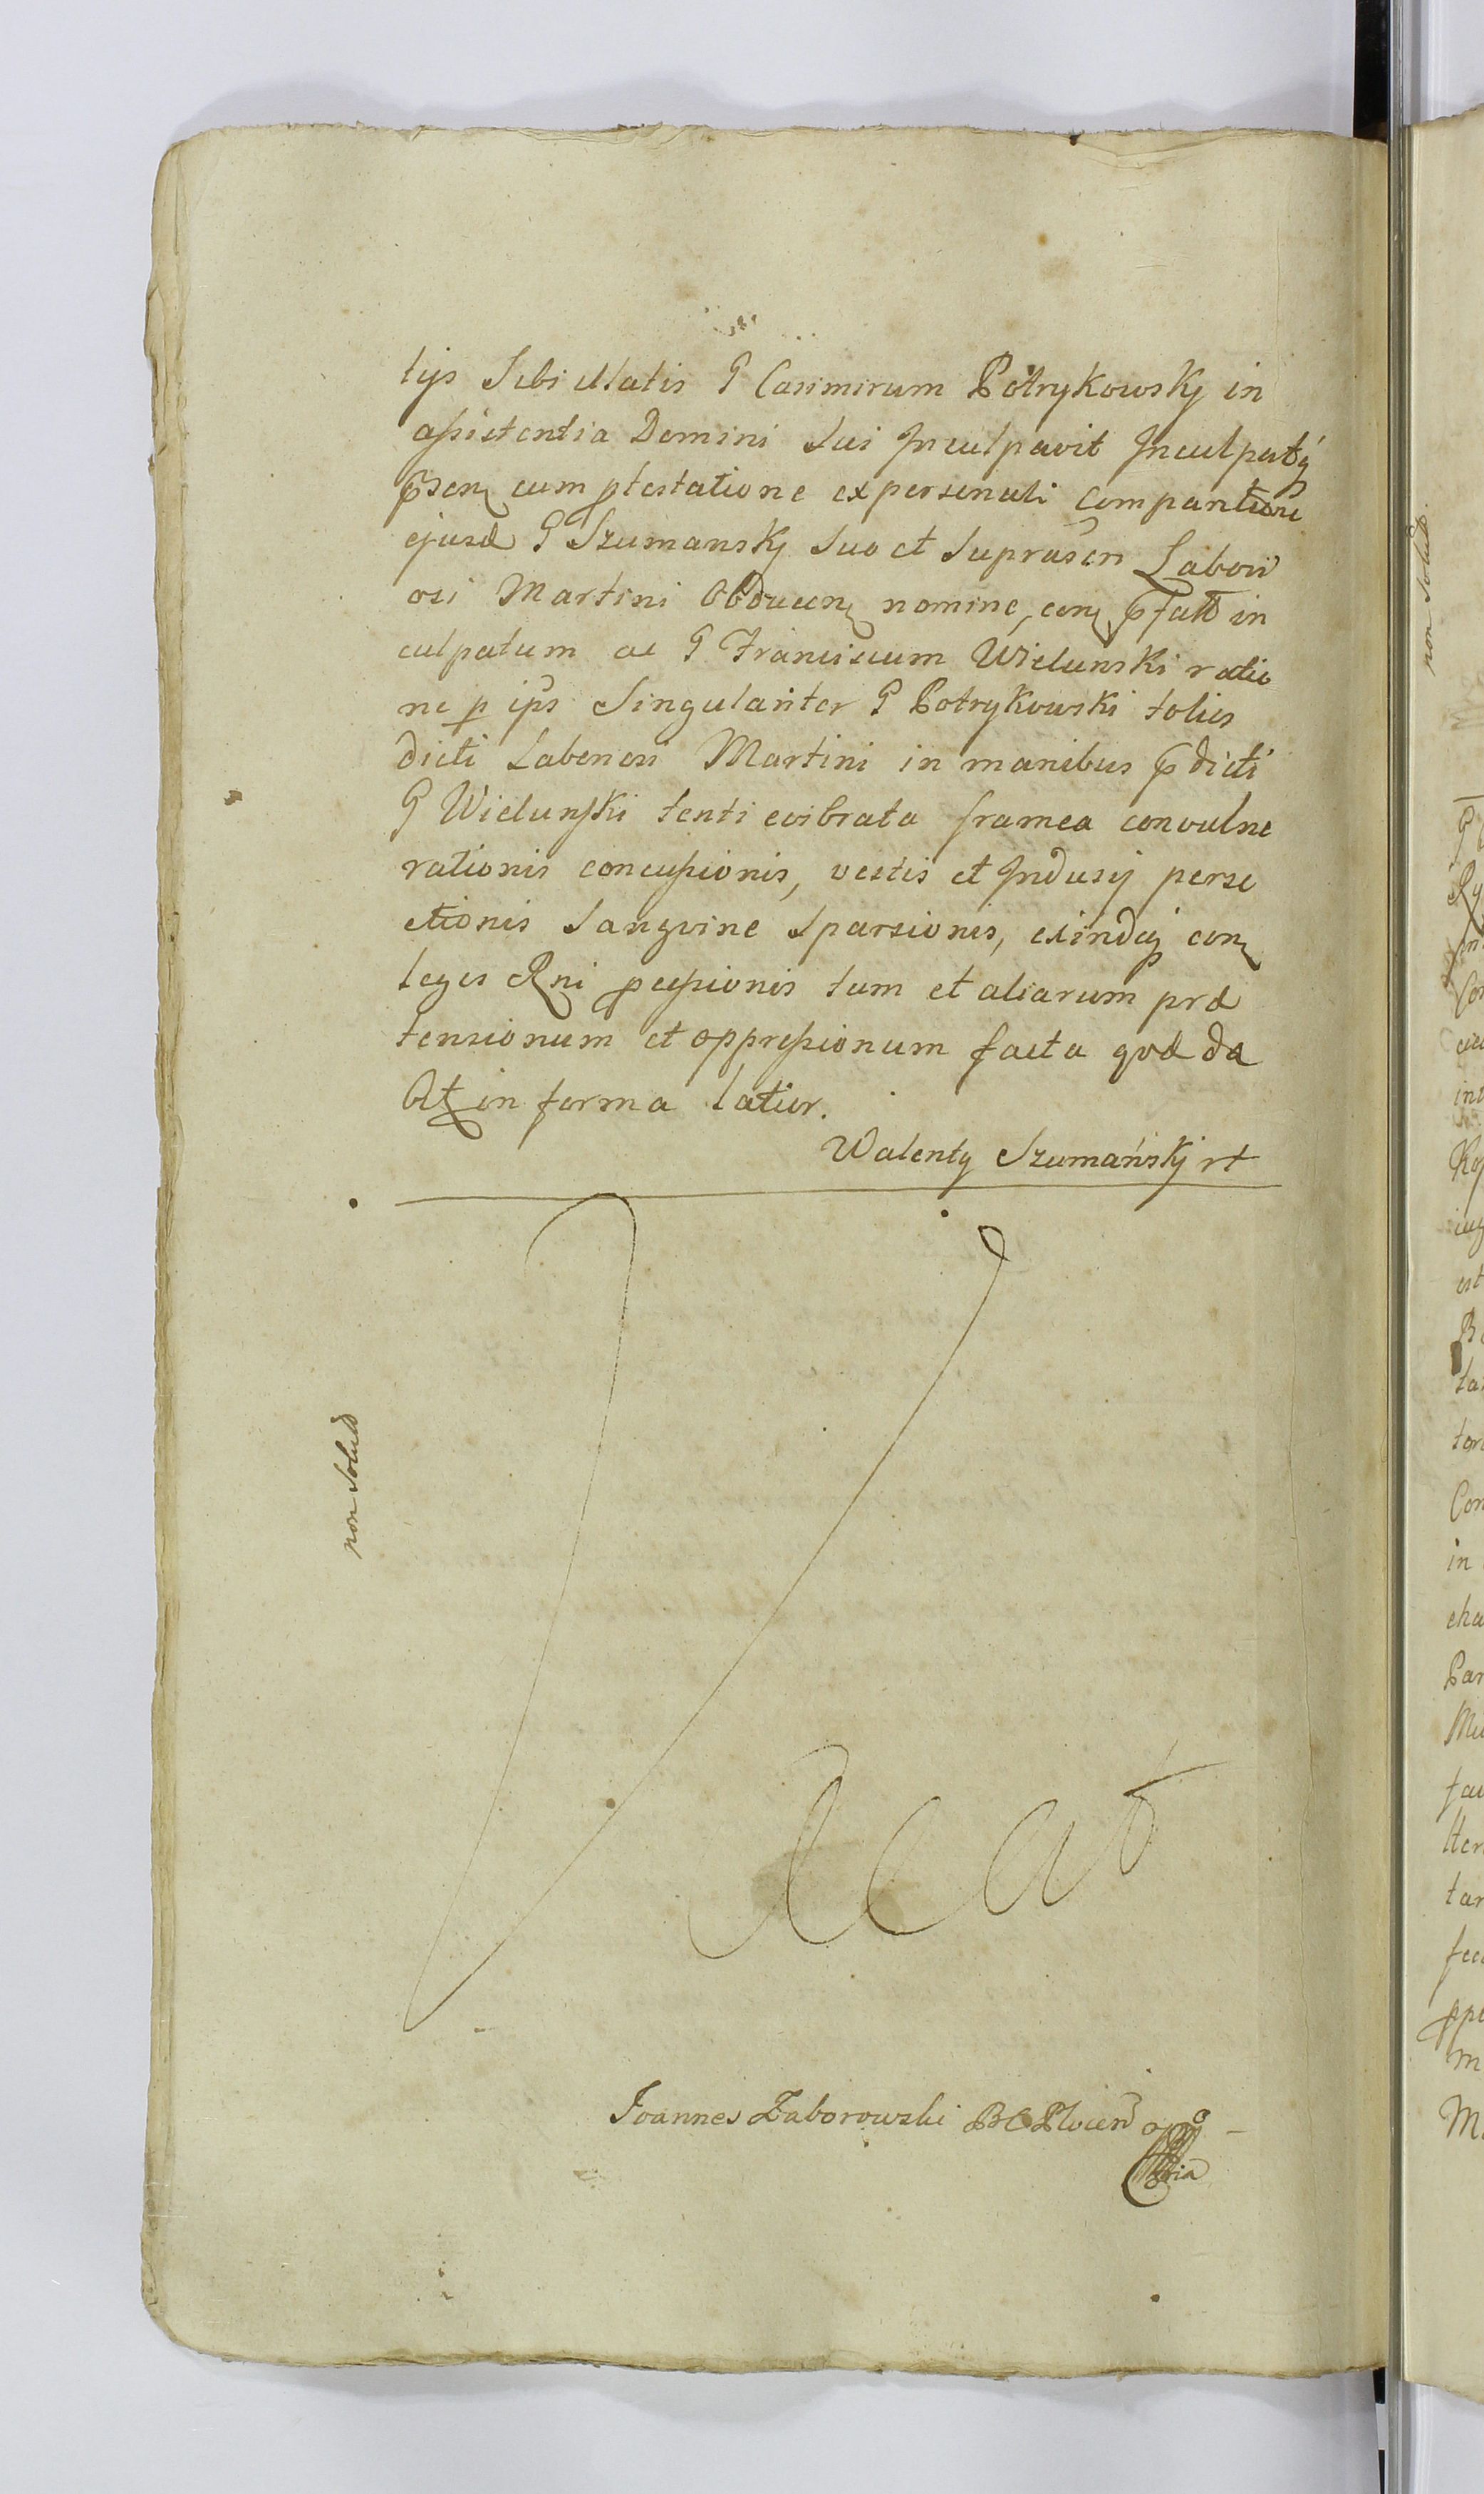 tijs Sibi illatis G Casimirum Potrykowskj in
assistentia Domini Sui Inculpavit Inculpatq
psen cum ptestatione ex personali Comparitione
ejusd G Szumanskj Suo et Suprascn Labori
osi Martini Obducen nomine, con pfatu in
culpatum ac G Franciscum Wielunski ratio
ne p ips Singulariter G Potrykowski toties
dicti Laboriosi Martini in manibus pdicti
G Wielunski tenti evibrata framea convulne
rationis concussionis, vestis et Indusij perse
ctionis Sangvine Sparsionis, exindq con
leges Rni pcussionis tum et aliarum præ
tensionum et oppressionum facta qvæ da
Att in forma latior.
Walenty Szumańskj rt
non Solut
Vacat
Joannes Zaborowski BC Plocen